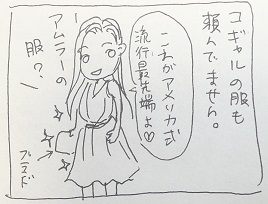 コギャルの服も
頼んでません。
これがアメリカ式
流行最先端よ♡
アムラーの
服?